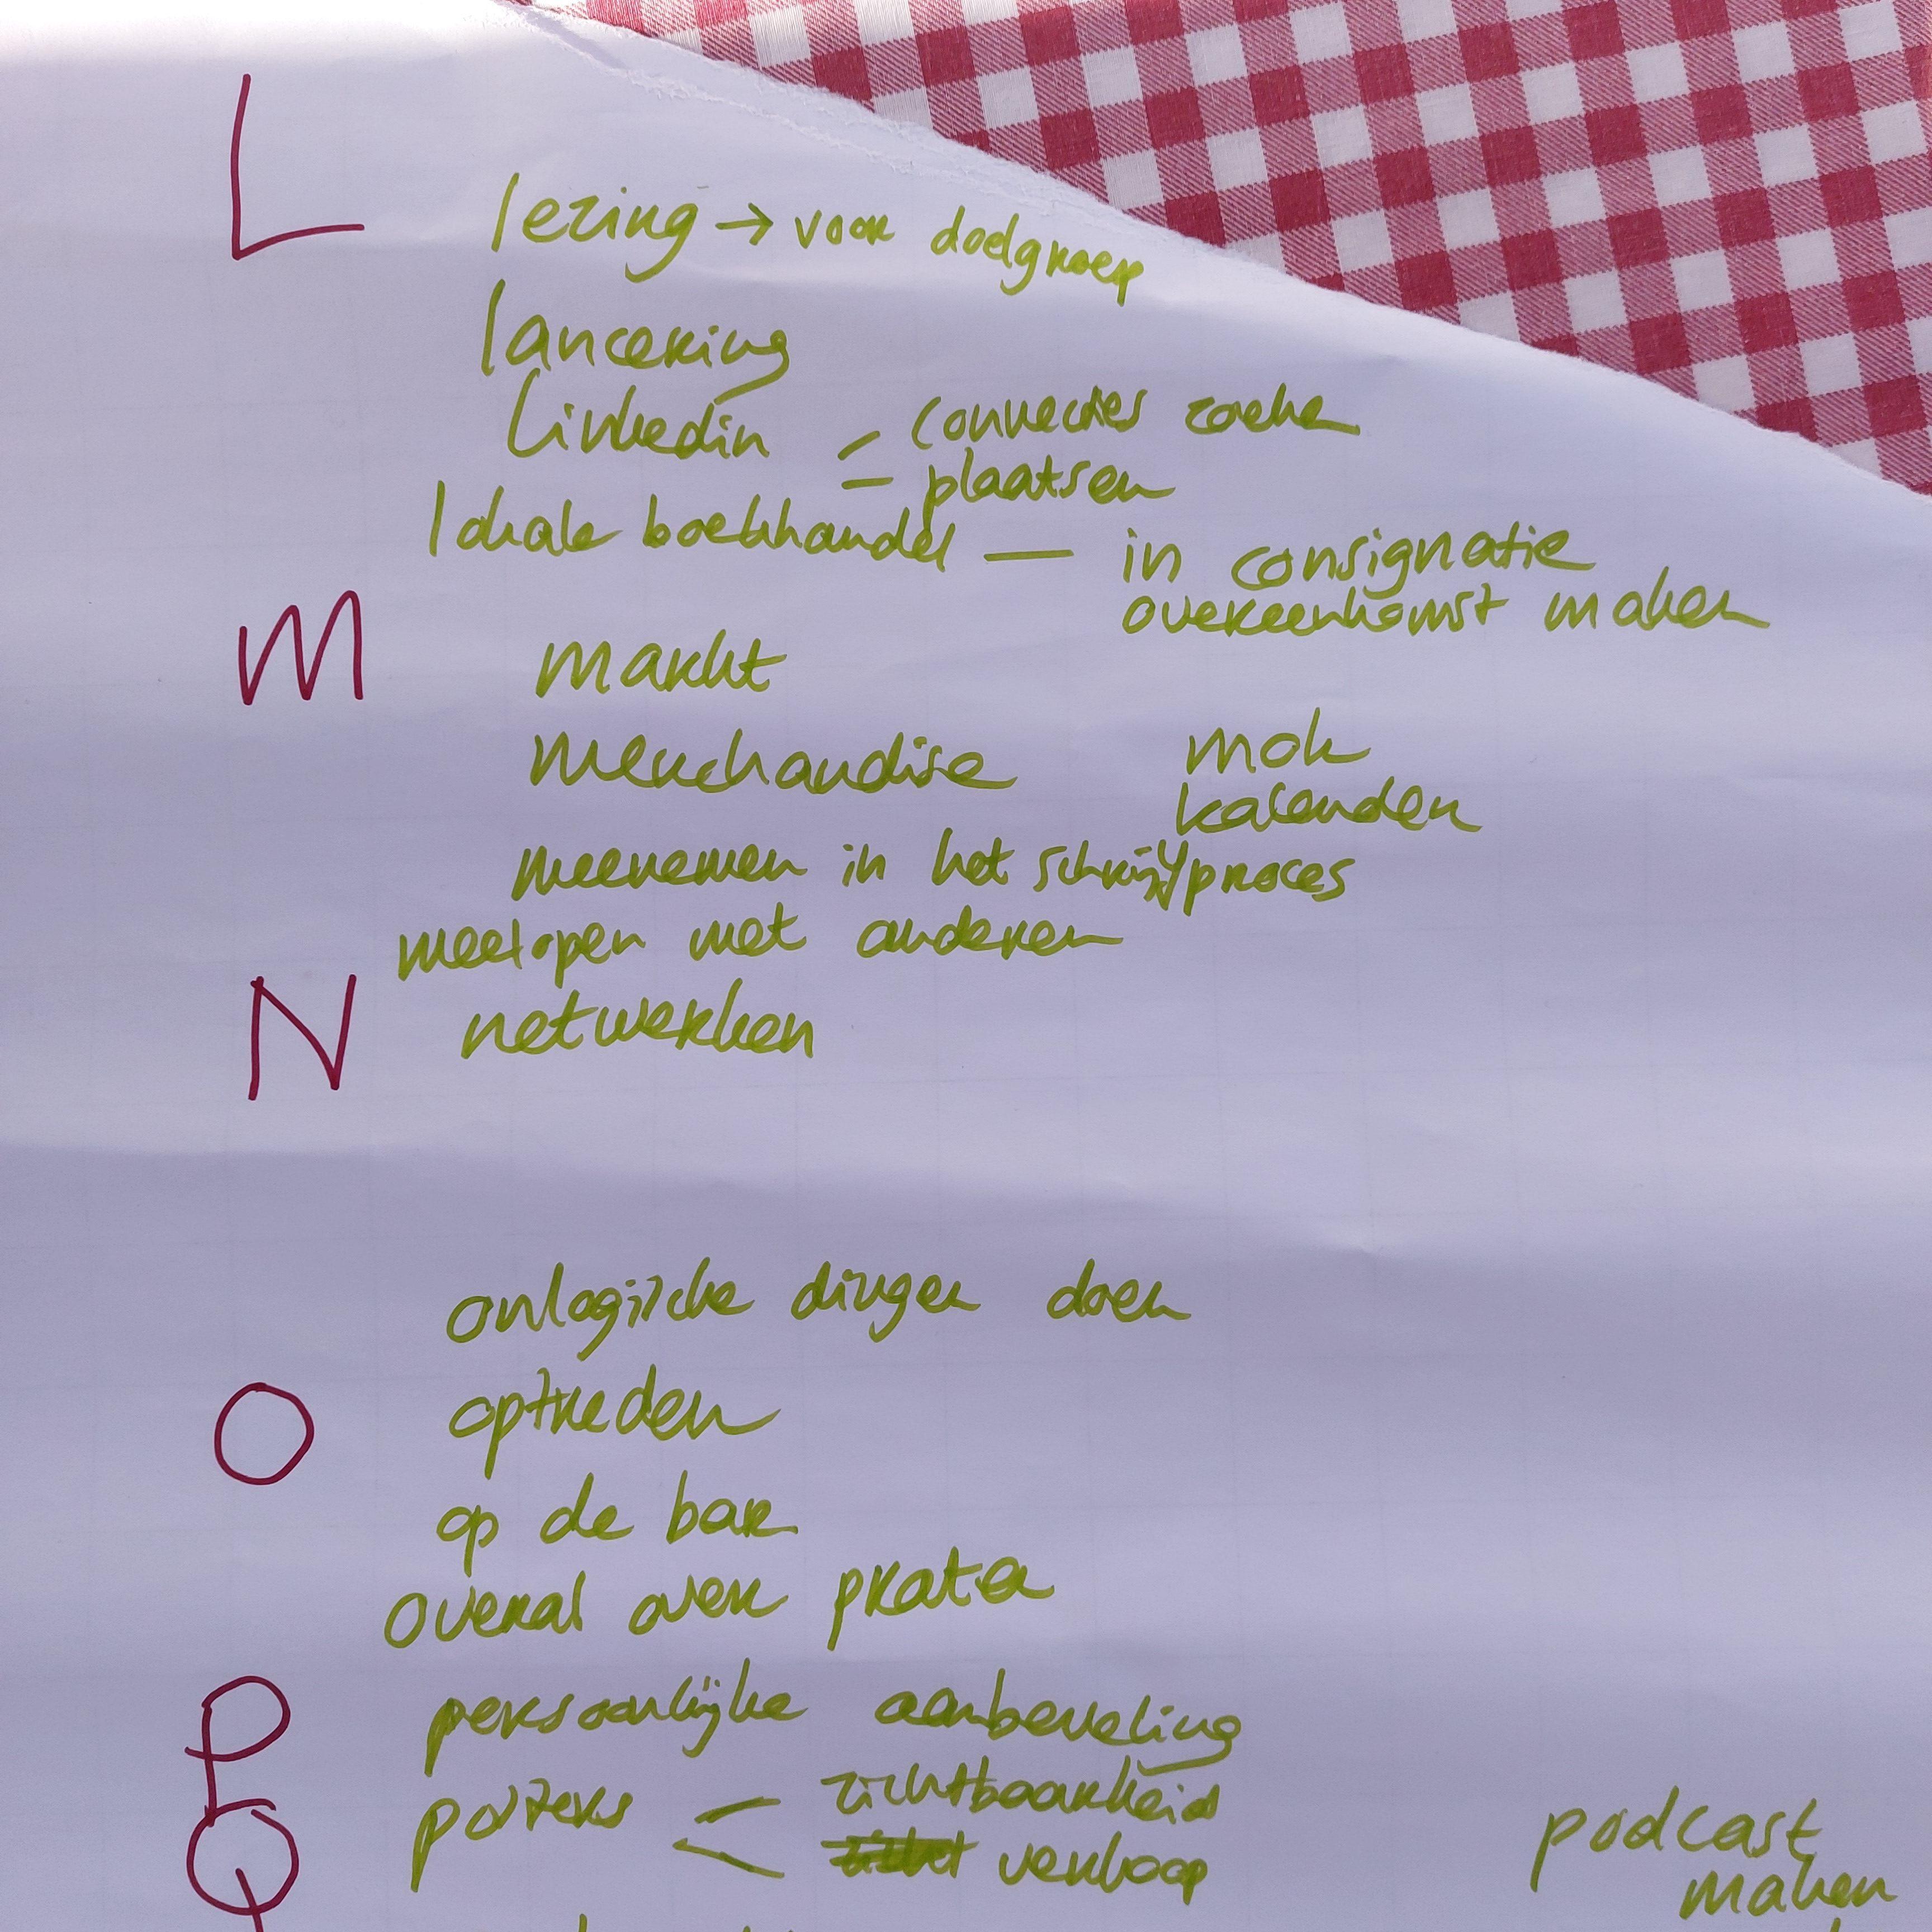 L
lezing → voor doelgroep
lancering
Linkedin - connecties zoeken
- plaatsen
lokale boekhandel — in consignatie
overeenkomst maken
M
markt
merchandise mok
kalender
meenemen in het schrijfproces
meelopen met anderen
N
netwerken
onlogische dingen doen
O
optreden
op de bar
overal over praten
P
persoonlijke aanbeveling
posters < zichtbaarheid
verkoop
podcast
maken
Q